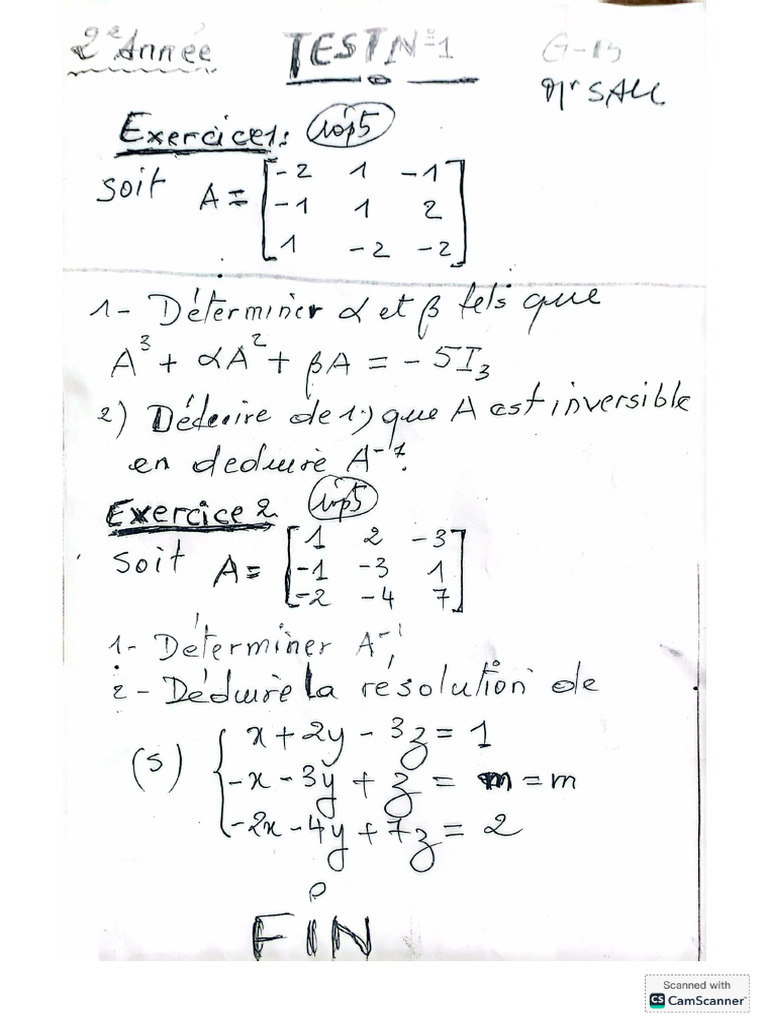 2e Année TEST N°1 G-13
Mr SALL
Exercice 1:
soit A = [-2 1 -1
-1 1 2
1 -2 -2]
1- Déterminer α et β tels que
A³ + αA² + βA = - 5I₃
2) Déduire de 1-) que A est inversible
en deduire A⁻¹.
Exercice 2
soit A = [1 2 -3
-1 -3 1
-2 -4 7]
1- Déterminer A⁻¹,
2- Déduire la résolution de
(S) { x + 2y - 3z = 1
-x - 3y + z = m = m
-2x - 4y + 7z = 2
FiN
Scanned with
CS CamScanner